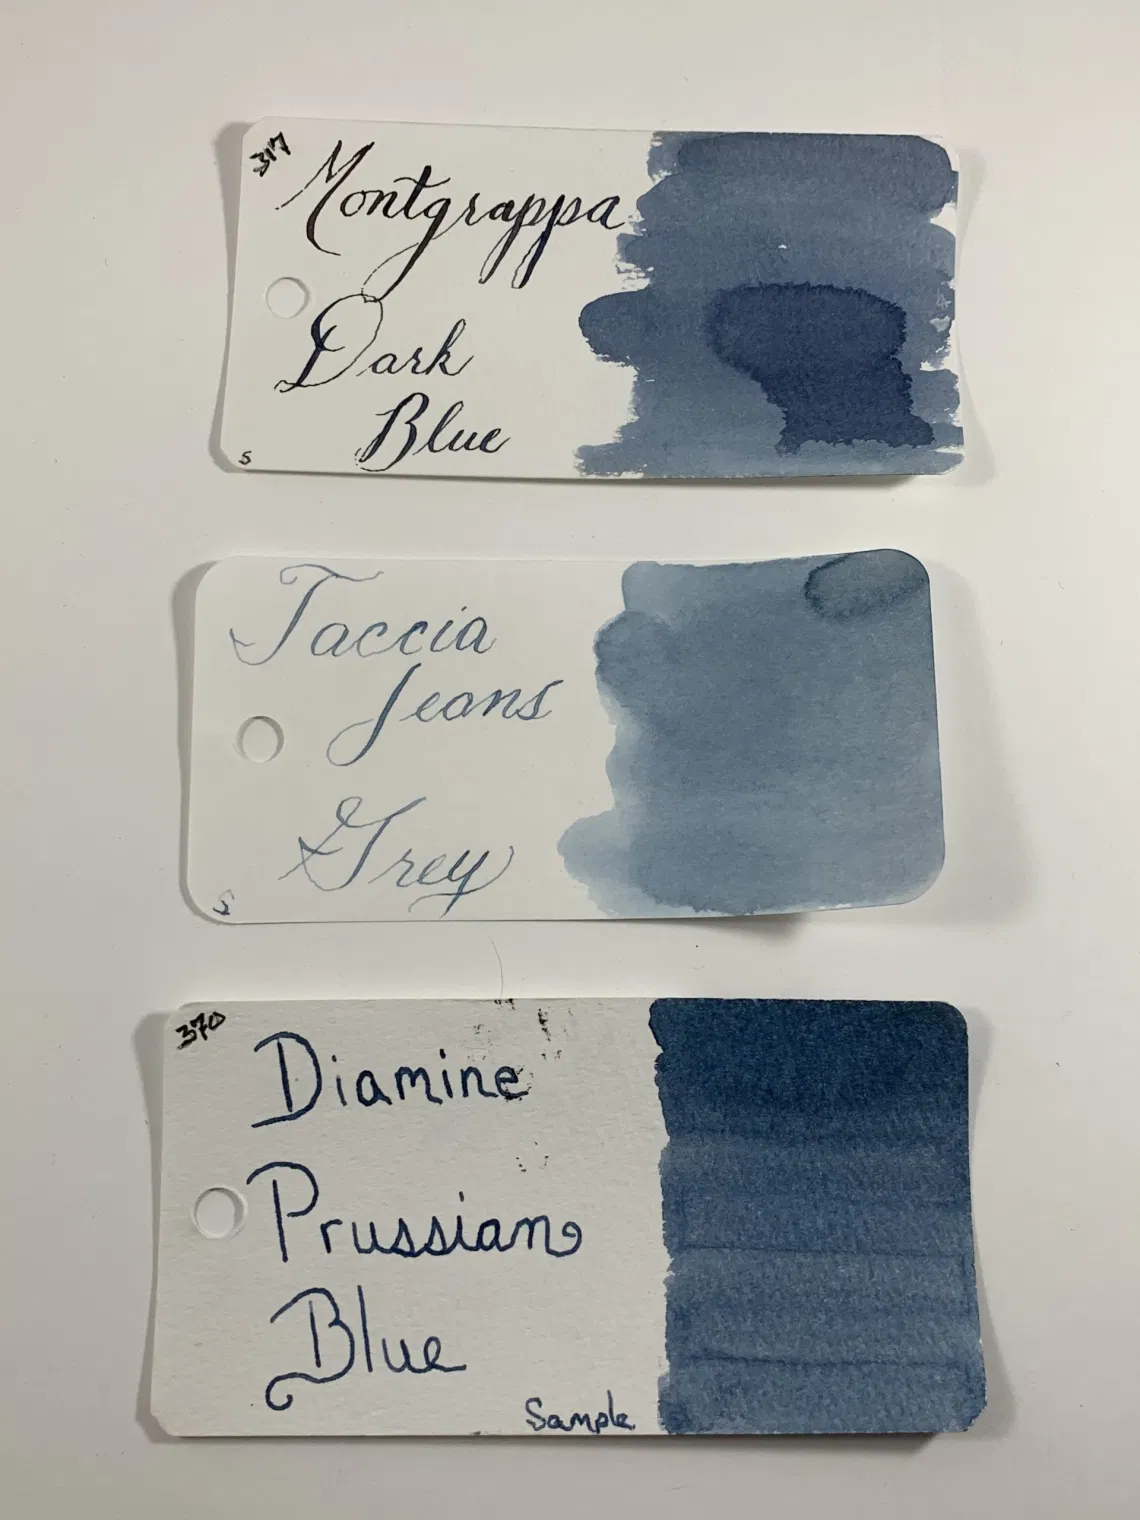 317
Montgrappa
Dark
Blue
S
Taccia
Jeans
Grey
S
370
Diamine
Prussian
Blue
Sample